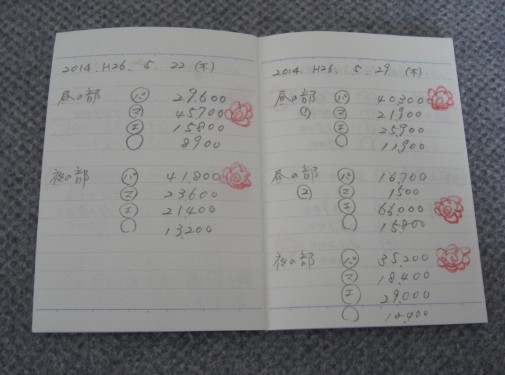 2014. H26. 5. 22 (木)
昼の部 パ 29.600
マ 45700
エ 15800
8900
夜の部 パ 41,800
マ 23,600
エ 21,400
13,200
2014. H26. 5. 29 (木)
昼の部 パ 40300
① マ 21900
エ 25900
11,900
昼の部 パ 16,700
② マ 1500
エ 66000
15,800
夜の部 パ 35,200
マ 18,400
エ 29,000